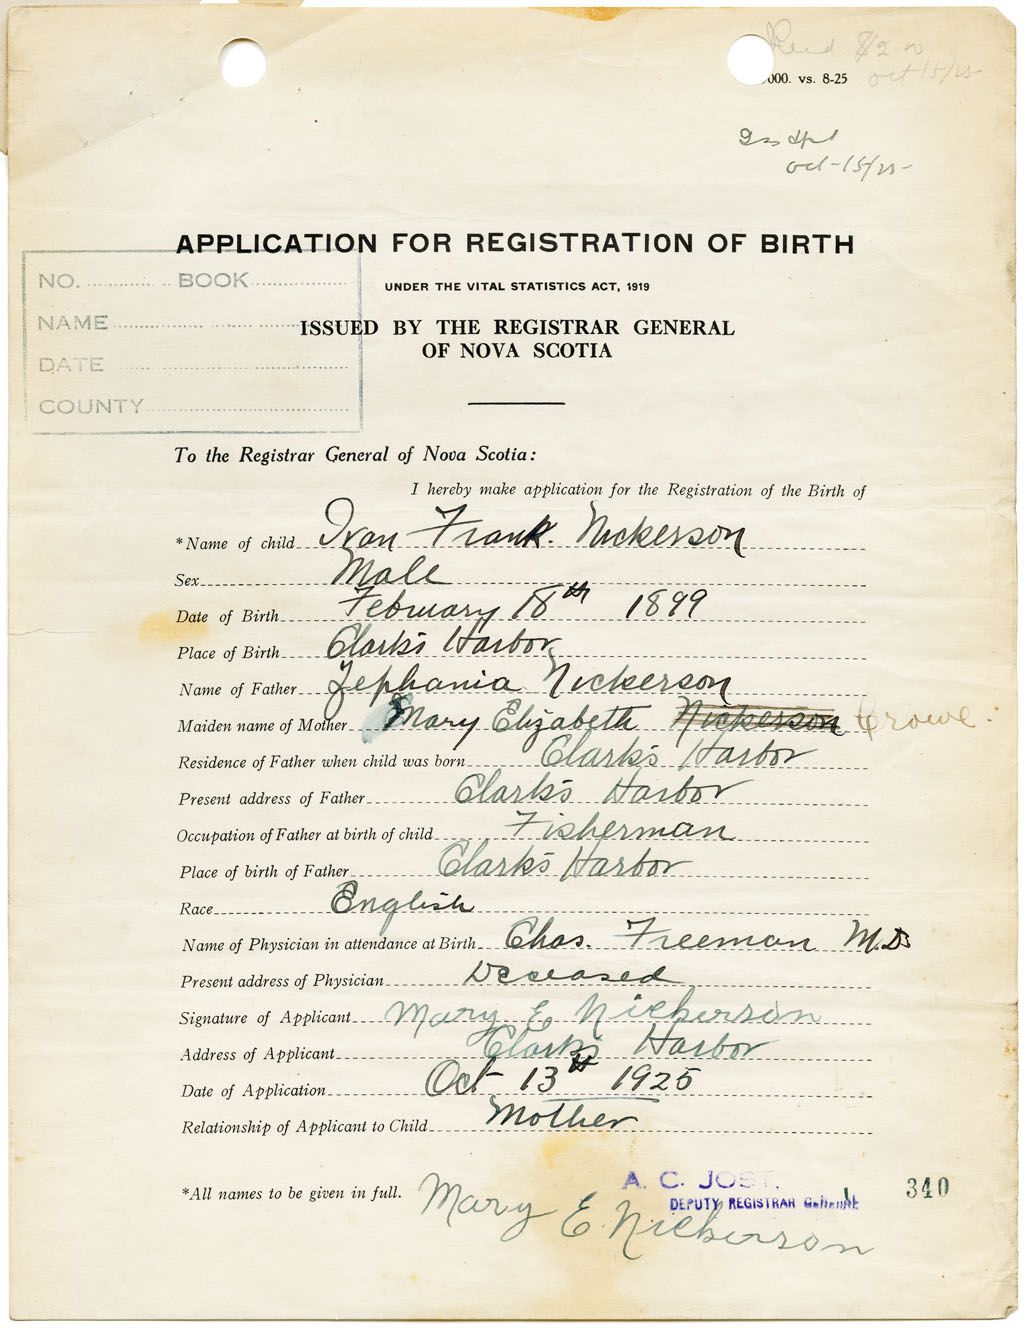 $2.00
000. vs. 8-25
Oct 15/25
Oct-15/25-
APPLICATION FOR REGISTRATION OF BIRTH
NO. BOOK
UNDER THE VITAL STATISTICS ACT, 1919
NAME
ISSUED BY THE REGISTRAR GENERAL
OF NOVA SCOTIA
DATE
COUNTY
To the Registrar General of Nova Scotia:
I hereby make application for the Registration of the Birth of
*Name of child Ivan Frank. Nickerson
Sex Male
Date of Birth February 18th 1899
Place of Birth Clark's Harbor
Name of Father Zephania Nickerson
Maiden name of Mother Mary Elizabeth Nickerson Crowe.
Residence of Father when child was born Clark's Harbor
Present address of Father Clark's Harbor
Occupation of Father at birth of child Fisherman
Place of birth of Father Clark's Harbor
Race English
Name of Physician in attendance at Birth Chas. Freeman M.D.
Present address of Physician Deceased
Signature of Applicant Mary E Nickerson
Address of Applicant Clark's Harbor
Date of Application Oct 13th 1925
Relationship of Applicant to Child Mother
*All names to be given in full.
A. C. JOST.
DEPUTY REGISTRAR GENERAL
340
Mary E. Nickerson